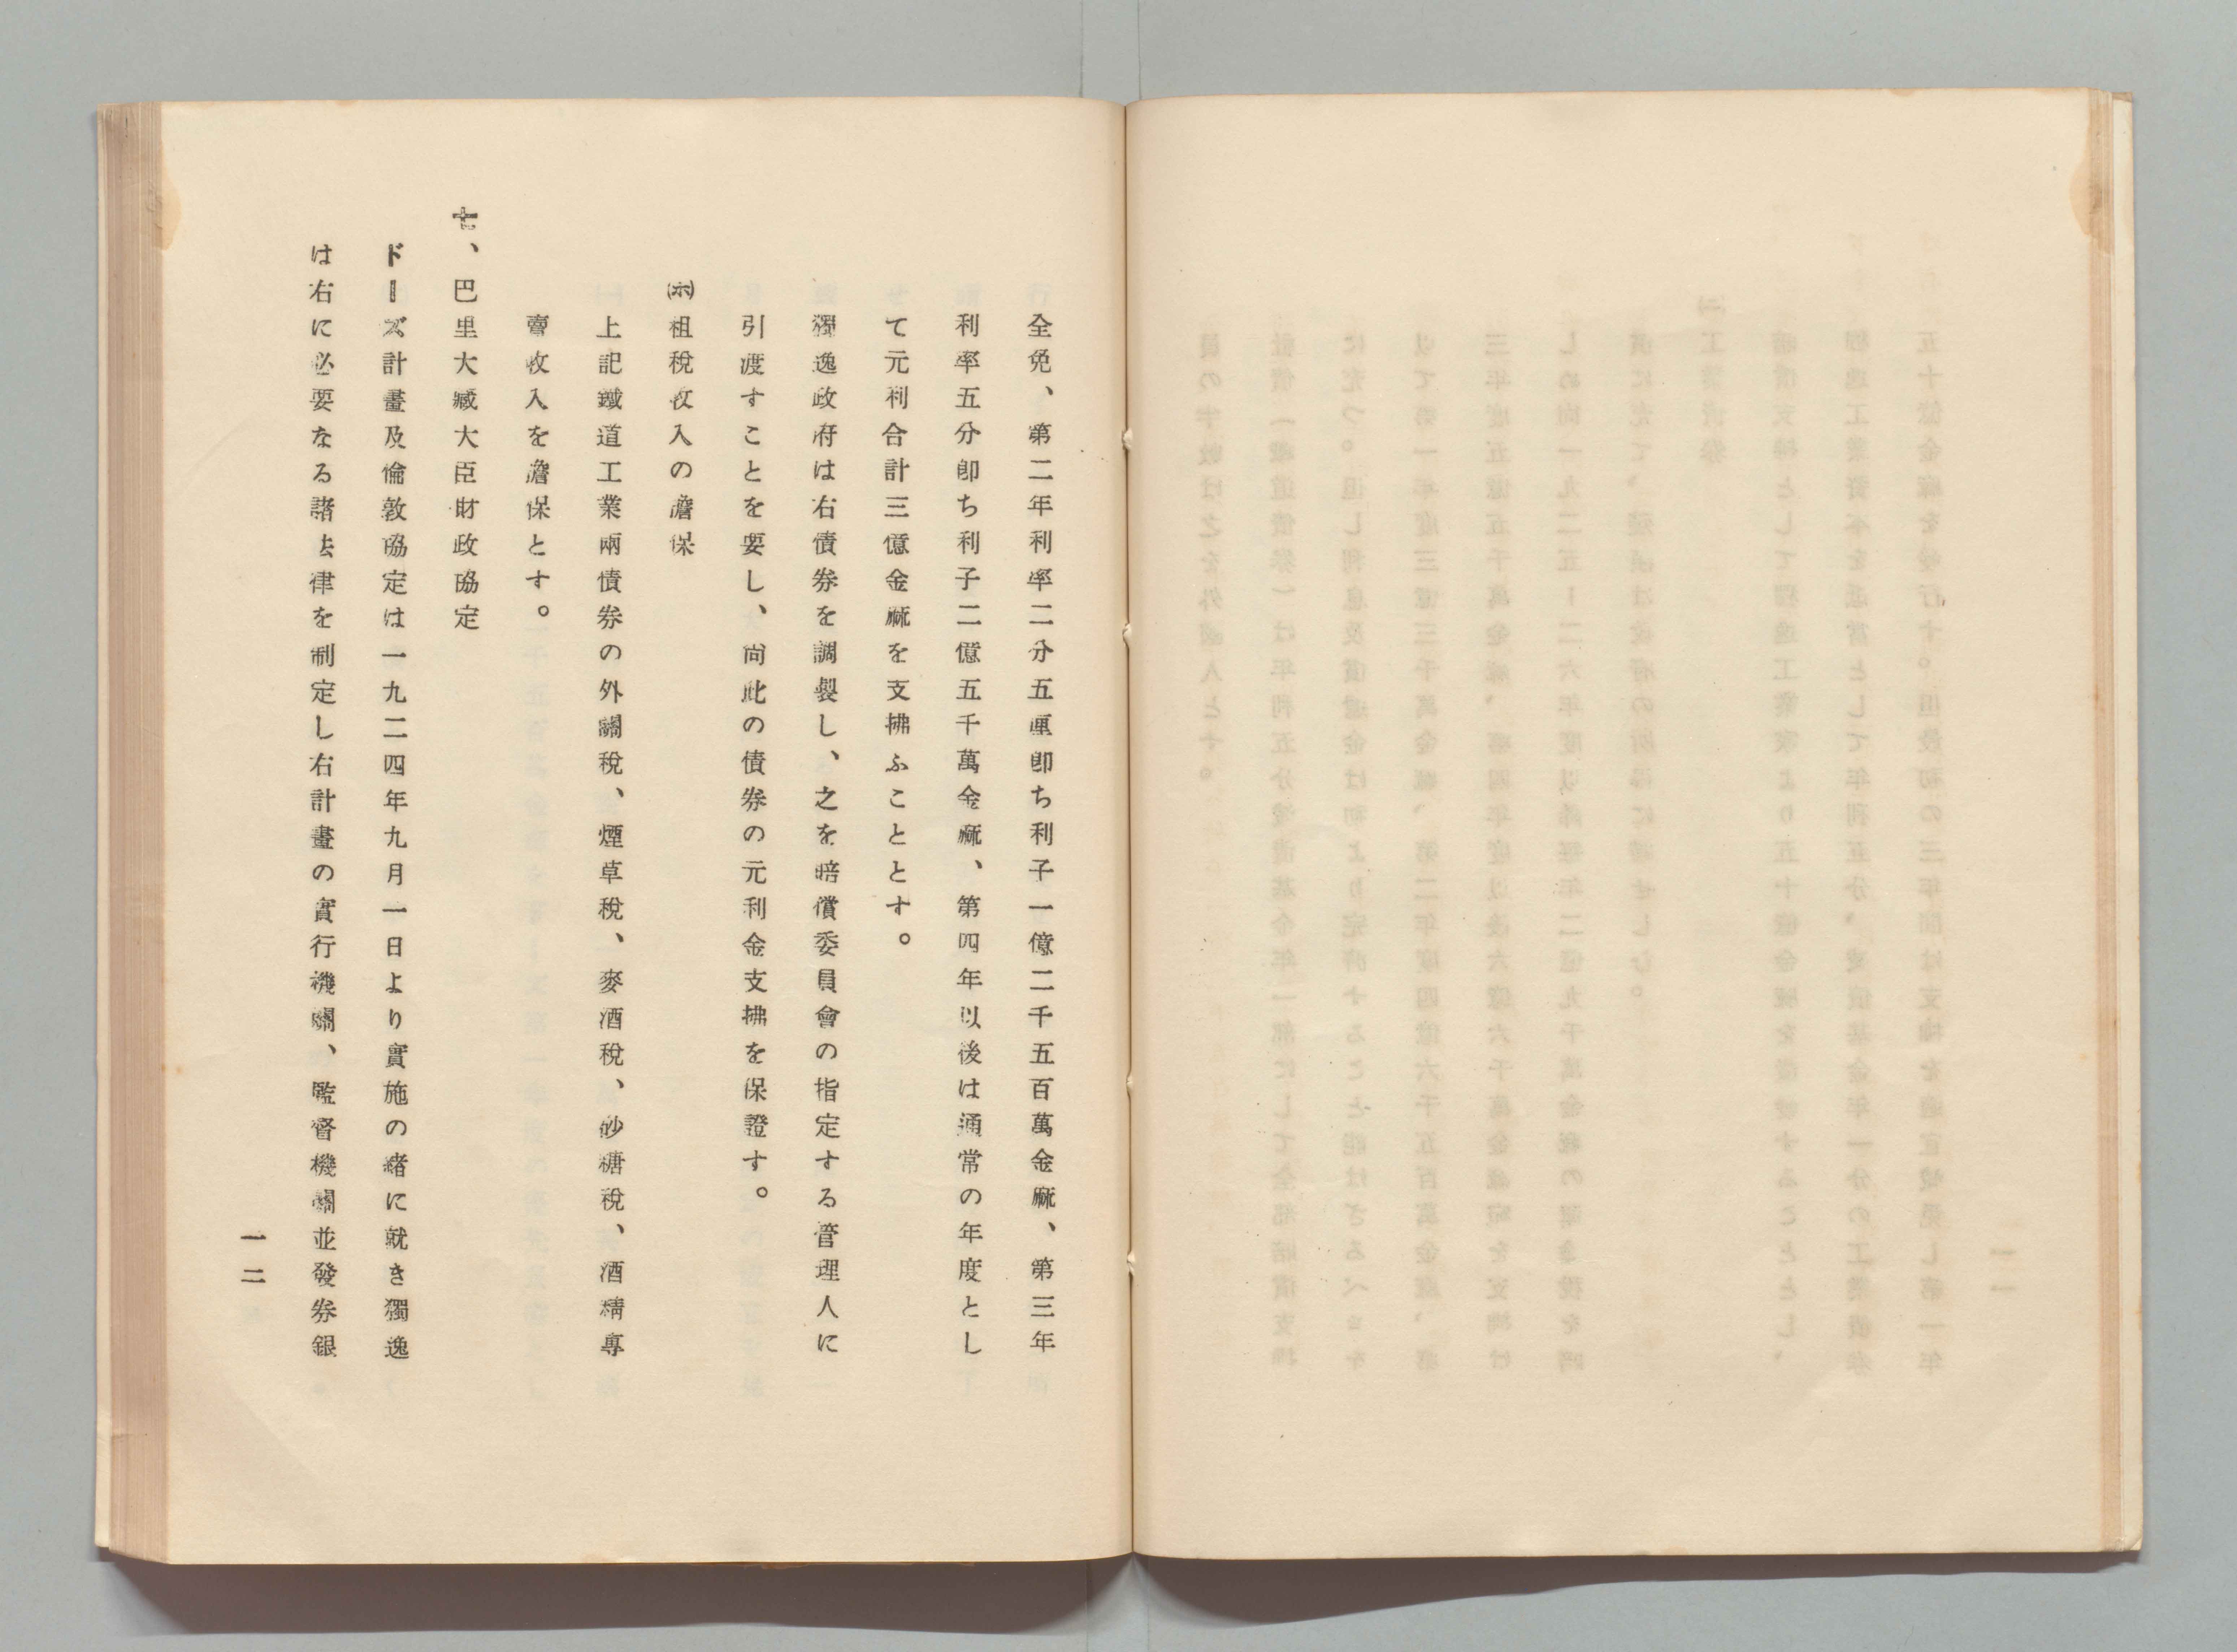 全免、第二年利率二分五厘卽ち利子一億二千五百萬金麻、第三年
利率五分卽ち利子二億五千萬金麻、第四年以後は通常の年度とし
て元利合計三億金麻を支拂ふこととす。
獨逸政府は右債券を調製し、之を賠償委員會の指定する管理人に
引渡すことを要し、尙此の債券の元利金支拂を保證す。
㈭租稅收入の擔保
上記鐵道工業兩債券の外關稅、煙草稅、麥酒稅、砂糖稅、酒精專
賣收入を擔保とす。
七、巴里大藏大臣財政協定
ドーズ計畫及倫敦協定は一九二四年九月一日より實施の緖に就き獨逸
は右に必要なる諸法律を制定し右計畫の實行機關、監督機關並發券銀
一二